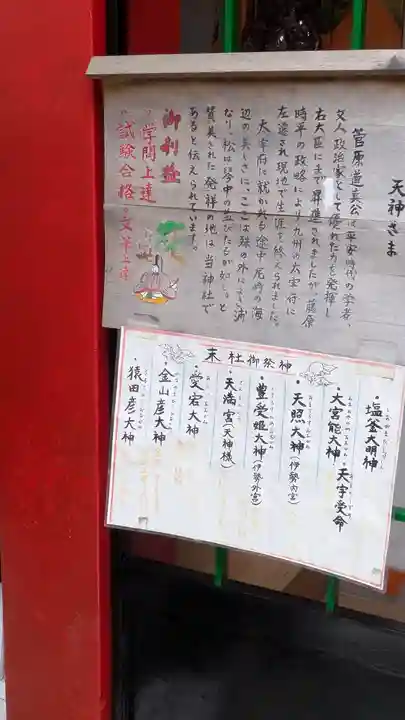 天神さま
菅原道真公は平安時代の学者、
文人、政治家として優れた力を発揮し
右大臣にまで昇進されましたが、藤原
時平の政略により九州の太宰府に
左遷され現地で生涯を終えられました。
太宰府に就かれる途中、尼崎の海
辺の美しさに、ここは殊の外にて浦
なり、松は琴中の並びたるが如し。と
賛美された発祥の地は当神社で
あると伝えられています。
御利益
学問上達
試験合格 文筆上達
末社御祭神
・塩釜大明神
・大宮能大神 天宇受命
・天照大神(伊勢内宮)
・豊受姫大神(伊勢外宮)
・天満宮(天神様)
・愛宕大神
・金山彦大神
・猿田彦大神